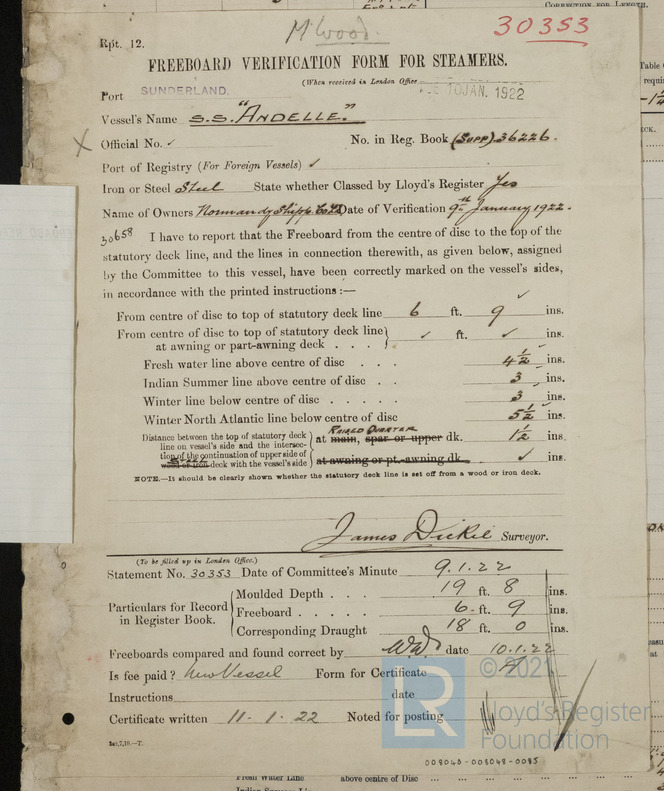 CORRECTION FOR LENGTH.
M. Wood.
30353
Rpt. 12.
FREEBOARD VERIFICATION FORM FOR STEAMERS.
(When received in London Office
10 JAN. 1922
Port SUNDERLAND.
Vessel's Name S.S. "ANDELLE."
X Official No. ✓ No. in Reg. Book (SUPP) 36226.
Port of Registry (For Foreign Vessels) ✓
Iron or Steel Steel State whether Classed by Lloyd's Register Yes
Name of Owners Normandy Shipp. Co Ld Date of Verification 9th January 1922.
30658 I have to report that the Freeboard from the centre of disc to the top of the
statutory deck line, and the lines in connection therewith, as given below, assigned
by the Committee to this vessel, have been correctly marked on the vessel's sides,
in accordance with the printed instructions :—
From centre of disc to top of statutory deck line 6 ft. 9 ✓ ins.
From centre of disc to top of statutory deck line
at awning or part-awning deck . . . ✓ ft. ✓ ins.
Fresh water line above centre of disc . . . 4 1/2 ins.
Indian Summer line above centre of disc . . 3 ins.
Winter line below centre of disc . . . . . 3 ins.
Winter North Atlantic line below centre of disc 5 1/2 ins.
Distance between the top of statutory deck
line on vessel's side and the intersec-
tion of the continuation of upper side of
STEEL wood or iron deck with the vessel's side
RAISED QUARTER
at main, spar or upper dk. 1 1/2 ins.
at awning or pt.-awning dk. ✓ ins.
NOTE.—It should be clearly shown whether the statutory deck line is set off from a wood or iron deck.
James Dickie Surveyor.
(To be filled up in London Office.)
Statement No. 30353 Date of Committee's Minute 9.1.22
Particulars for Record
in Register Book.
Moulded Depth . . . 19 ft. 8 ins.
Freeboard . . . . . 6 ft. 9 ins.
Corresponding Draught 18 ft. 0 ins.
Freeboards compared and found correct by date 10.1.22
Is fee paid? New Vessel Form for Certificate
Instructions date
Certificate written 11.1.22 Noted for posting
LR
© 2021
Lloyd's Register
Foundation
008040-008048-0085
Fresh Water Line above centre of Disc